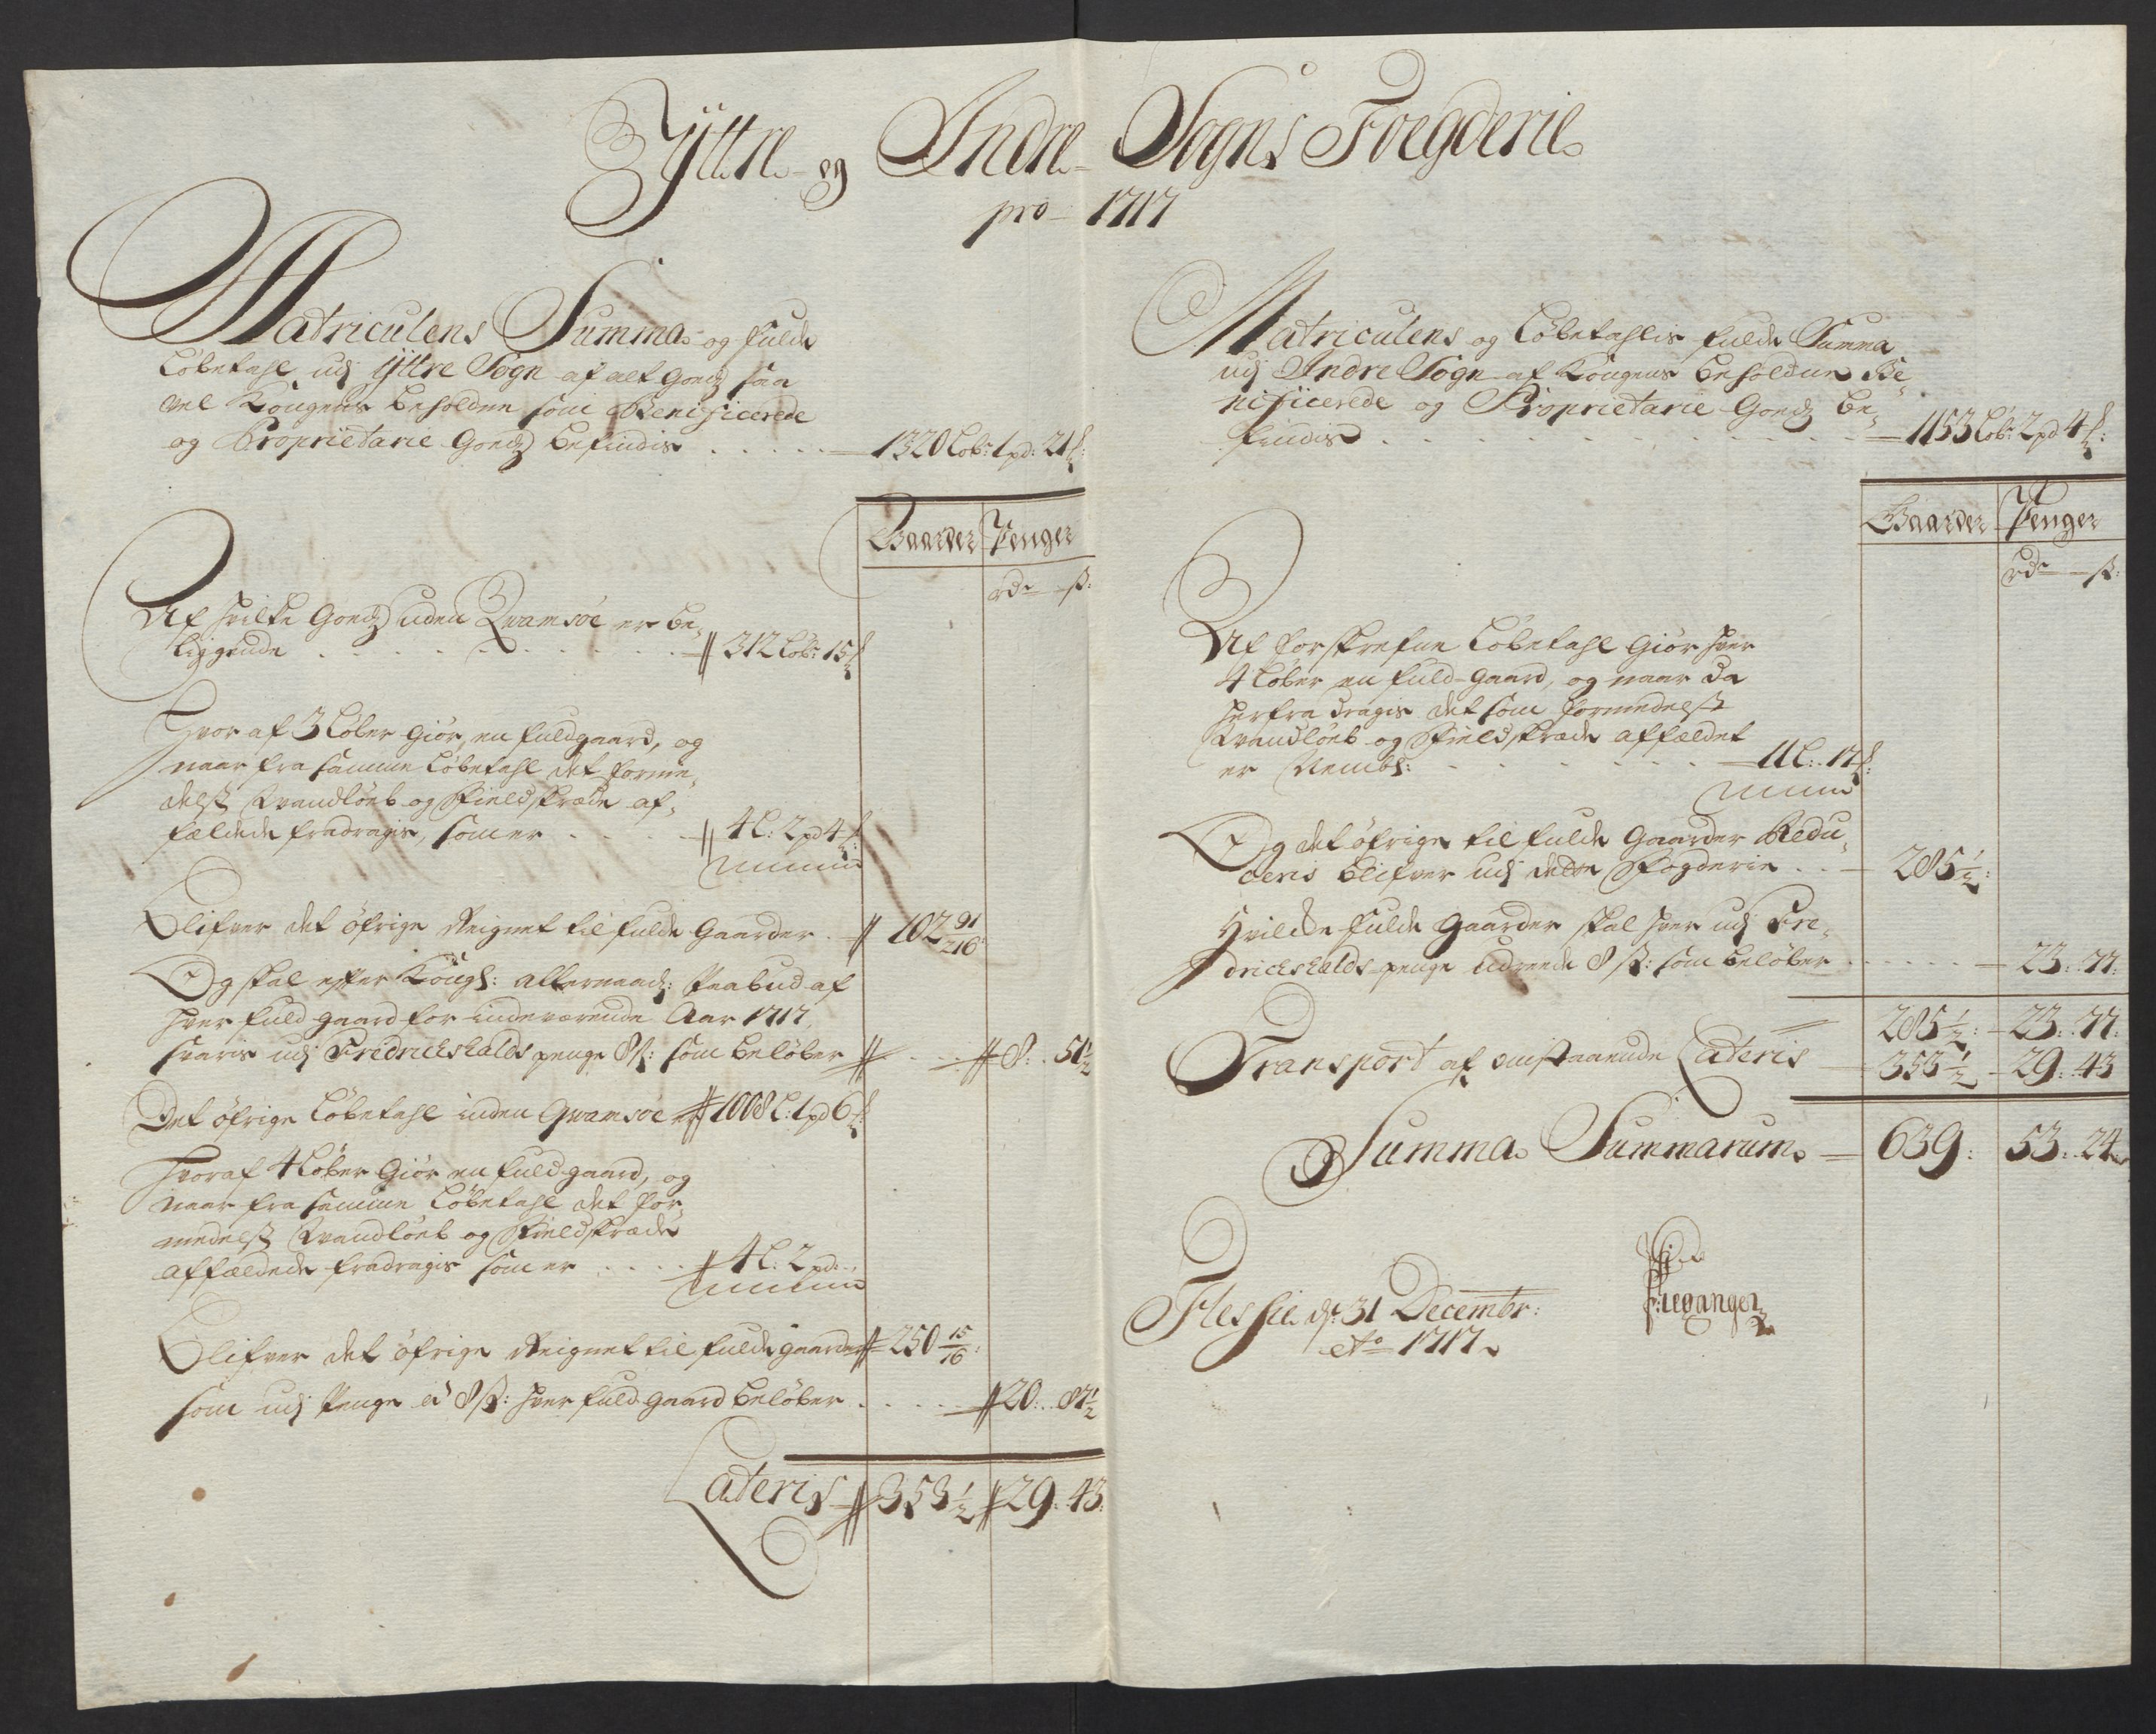 Yttre og Indre Sogns Foegderie
pro 1717
Matriculens Summa og fulde
Løbetahl udj ÿttre Sogn af alt Goedz saa
vel Kongens beholdne som Benificerede
og Proprietarie Goedz befindis . . . . . 1320 Løb: 1 pd: 21 ℔:
Gaarder Penger
rdr ß:
Af hvilke Goedz uden Qvamsøe er be-
liggende . . . . . . . . 312 Løb: 15 ℔
Hvoraf 3 Løber giør en fuldgaard, og
naar fra samme Løbetahl det forme-
delst Vandløeb og Fieldskræde af-
fældede fradragis, som er . . . . 4 L: 2 pd 4 ℔
Blifver det øfrige Reignet til fulde Gaarder . 102 91/216
Og skal efter Kongl: allernaad: Paabud af
hver fuld gaard for indeværende Aar 1717
svaris udj Fridrichshalds penge 8 ß: som beløber . . . 8: 51½
Det øfrige Løbetahl inden Qvamsøe er 1008 L: 1 pd 6 ℔:
hvoraf 4 Løber Giør en fuld gaard, og
naar fra samme Løbetahl det for-
medelst Vandløeb og Fieldskræde
affældede fradragis som er . . . . 4 L: 2 pd:
Blifver det øfrige Reignet til fulde gaarder 250 15/16:
som udj Penge á 8 ß: hver fuld gaard beløber . . . . . 20: 87½
Lateris 353½ 29: 43:
Matriculens og Løbetahlis fulde Summa
udj Indre Sogn af Kongens beholdne Be-
nificerede og Proprietarie Goedz be-
findis . . . . . . . . . . 1153 Løb: 2 pd 4 ℔:
Gaarder Penger
rdr ß:
Af forskrefne Løbetahl Giør hver
4 Løber en fuld-gaard, og naar da
herfra dragis det som formedelst
Vandløeb og Fieldskræde affældet
er Nembl: . . . . . . . 11 L: 17 ℔:
Og det øfrige til fulde Gaarder Redu-
ceris blifver udj dette Fogderie . . 285½:
Hvilcke fulde gaarder skal hver udj Fre-
drichshalds penge udreede 8 ß: som beløber . . . . . 23: 77:
285½: 23: 77:
Transport af omstaaende Lateris 353½ 29: 43
Summa Summarum 639: 53: 24
Flessie d: 31 Decembr:
Ao 1717